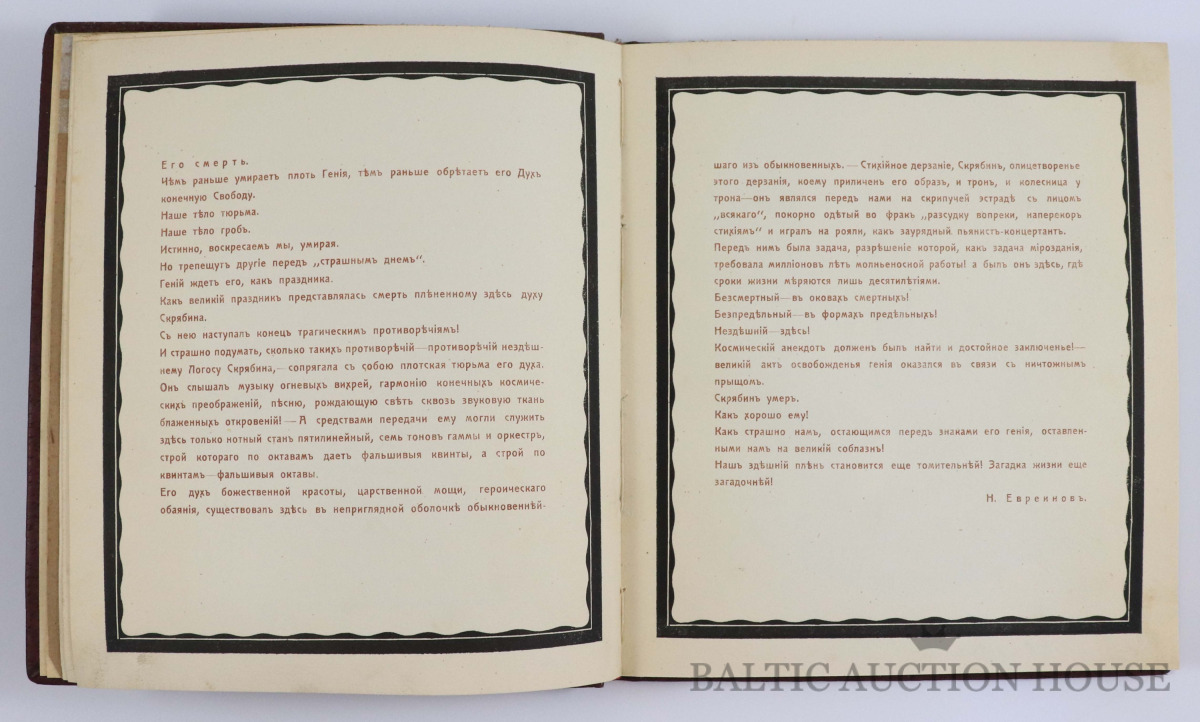 Его смерть.
Чѣмъ раньше умираетъ плоть Генія, тѣмъ раньше обрѣтаетъ его Духъ
конечную Свободу.
Наше тѣло тюрьма.
Наше тѣло гробъ.
Истинно, воскресаемъ мы, умирая.
Но трепещутъ другіе передъ „страшнымъ днемъ“.
Геній ждетъ его, какъ праздника.
Какъ великій праздникъ представлялась смерть плѣненному здѣсь духу
Скрябина.
Съ нею наступалъ конецъ трагическимъ противорѣчіямъ!
И страшно подумать, сколько такихъ противорѣчій—противорѣчій нездѣш-
нему Логосу Скрябина,—сопрягала съ собою плотская тюрьма его духа.
Онъ слышалъ музыку огневыхъ вихрей, гармонію конечныхъ космиче-
скихъ преображеній, пѣсню, рождающую свѣтъ сквозь звуковую ткань
блаженныхъ откровеній!—А средствами передачи ему могли служить
здѣсь только нотный станъ пятилинейный, семь тоновъ гаммы и оркестръ,
строй котораго по октавамъ даетъ фальшивыя квинты, а строй по
квинтамъ—фальшивыя октавы.
Его духъ божественной красоты, царственной мощи, героическаго
обаянія, существовалъ здѣсь въ неприглядной оболочкѣ обыкновеннѣй-
шаго изъ обыкновенныхъ.—Стихійное дерзаніе, Скрябинъ, олицетворенье
этого дерзанія, коему приличенъ его образъ, и тронъ, и колесница у
трона—онъ являлся передъ нами на скрипучей эстрадѣ съ лицомъ
„всякаго“, покорно одѣтый во фракъ „разсудку вопреки, наперекоръ
стихіямъ“ и игралъ на рояли, какъ заурядный пьянистъ-концертантъ.
Передъ нимъ была задача, разрѣшеніе которой, какъ задача мірозданія,
требовала милліоновъ лѣтъ молньеносной работы! а былъ онъ здѣсь, гдѣ
сроки жизни мѣряются лишь десятилѣтіями.
Безсмертный—въ оковахъ смертныхъ!
Безпредѣльный—въ формахъ предѣльныхъ!
Нездѣшній—здѣсь!
Космическій анекдотъ долженъ былъ найти и достойное заключенье!—
великій актъ освобожденья генія оказался въ связи съ ничтожнымъ
прыщомъ.
Скрябинъ умеръ.
Какъ хорошо ему!
Какъ страшно намъ, остающимся передъ знаками его генія, оставлен-
ными намъ на великій соблазнъ!
Нашъ здѣшній плѣнъ становится еще томительнѣй! Загадка жизни еще
загадочнѣй!
Н. Евреиновъ.
BALTIC AUCTION HOUSE